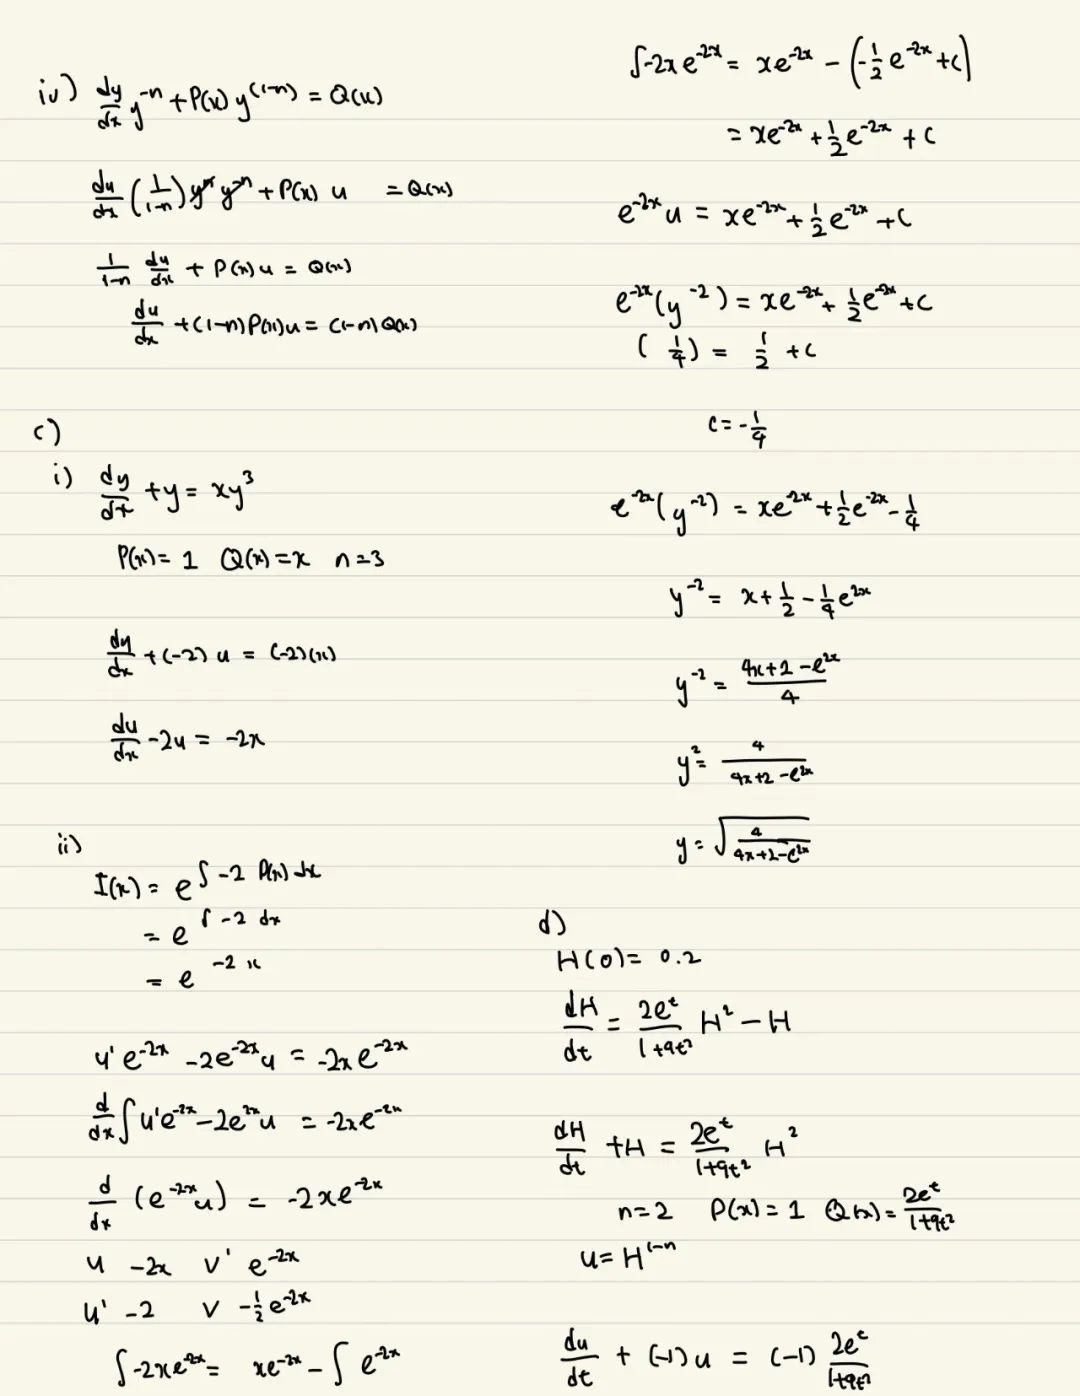 iv) dy/dx y^-n + P(x) y^(1-n) = Q(x)
du/dx (1/1-n) y^n y^-n + P(x) u = Q(x)
1/1-n du/dx + P(x) u = Q(x)
du/dx + (1-n) P(x) u = (1-n) Q(x)
c)
i) dy/dx + y = xy^3
P(x) = 1 Q(x) = x n = 3
dy/dx + (-2) u = (-2)(x)
du/dx - 2u = -2x
ii)
I(x) = e^∫-2 P(x) dx
= e^∫-2 dx
= e^-2x
u' e^-2x - 2e^-2x u = -2x e^-2x
d/dx ∫ u'e^-2x - 2e^-2x u = -2xe^-2x
d/dx (e^-2x u) = -2xe^-2x
u -2x v' e^-2x
u' -2 v -1/2 e^-2x
∫-2xe^-2x = xe^-2x - ∫ e^-2x
∫-2xe^-2x = xe^-2x - (-1/2 e^-2x + c)
= xe^-2x + 1/2 e^-2x + c
e^-2x u = xe^-2x + 1/2 e^-2x + c
e^-2x (y^-2) = xe^-2x + 1/2 e^-2x + c
(1/4) = 1/2 + c
c = -1/4
e^-2x (y^-2) = xe^-2x + 1/2 e^-2x - 1/4
y^-2 = x + 1/2 - 1/4 e^2x
y^-2 = 4x+2-e^2x/4
y^2 = 4/4x+2-e^2x
y = √(4/4x+2-e^2x)
d)
H(0) = 0.2
dH/dt = 2e^t/1+9t^2 H^2 - H
dH/dt + H = 2e^t/1+9t^2 H^2
n=2 P(x) = 1 Q(x) = 2e^t/1+9t^2
u = H^1-n
du/dt + (-1) u = (-1) 2e^t/1+9t^2